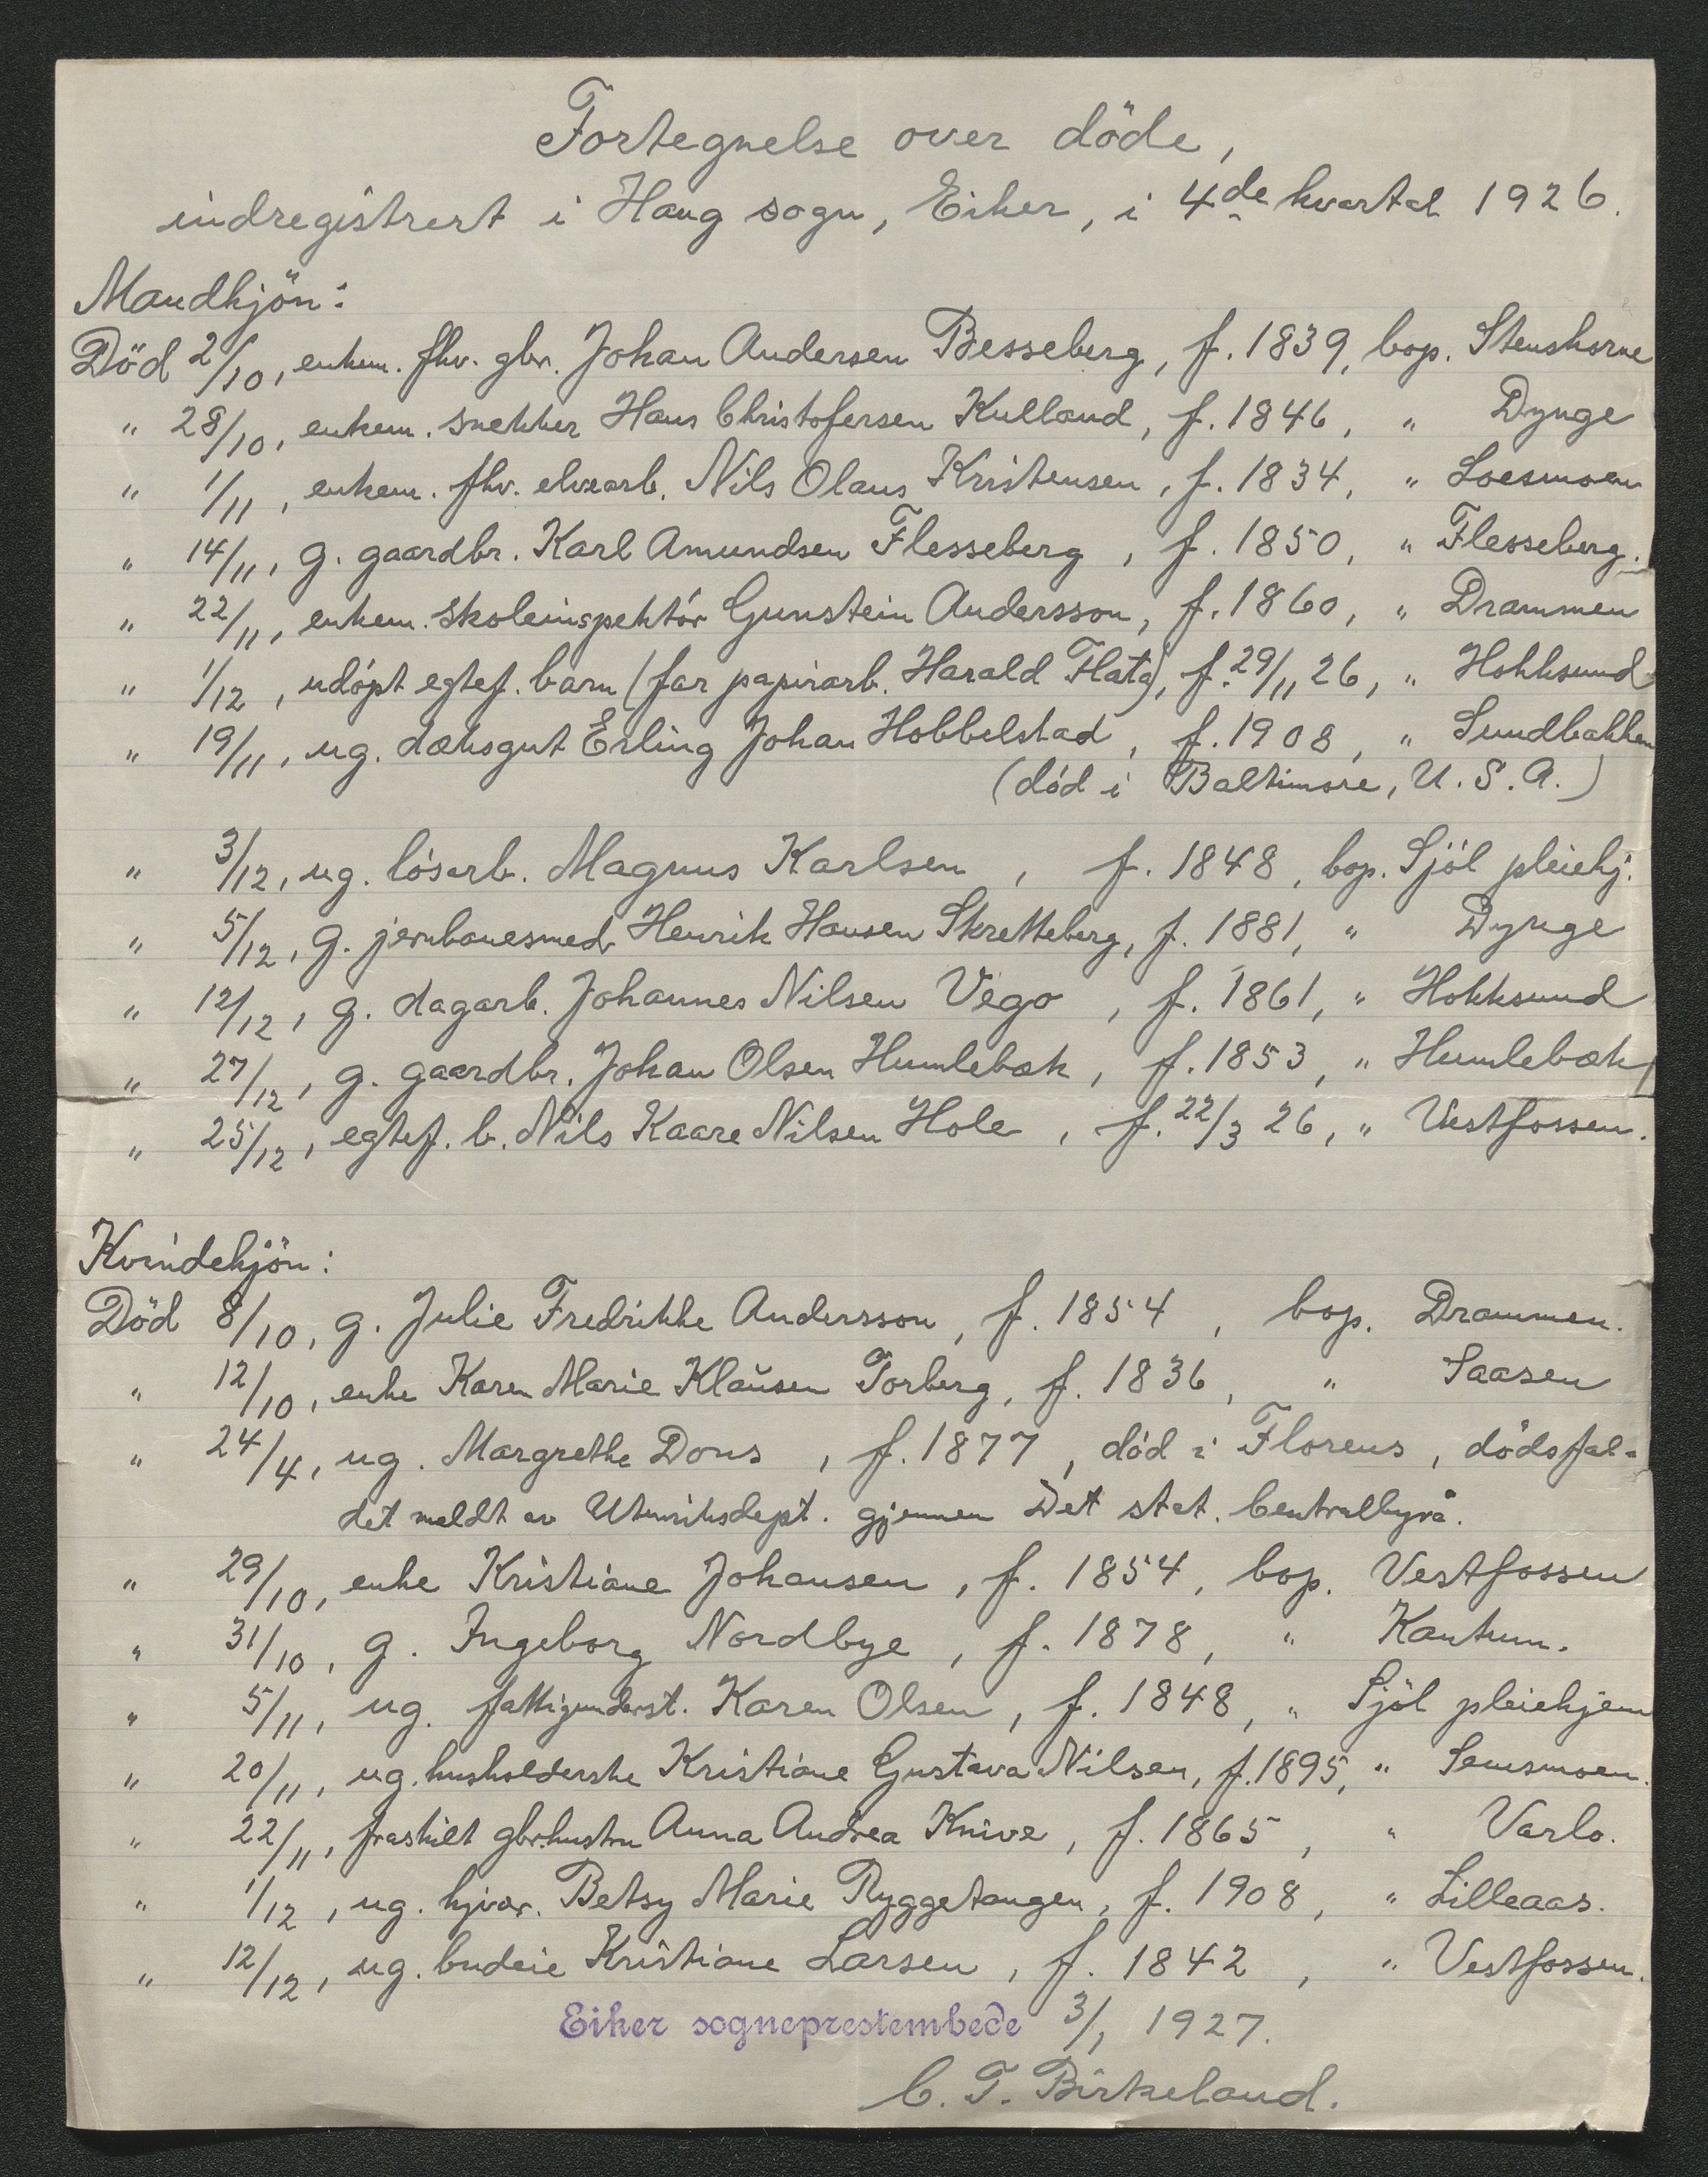 Fortegnelse over döde,
indregistrert i Haug sogn, Eiker, i 4de kvartal 1926.
Mandkjön:
Död 2/10, enkem. fhv. gbr. Johan Andersen Besseberg, f. 1839, bop. Stenshorne
" 28/10, enkem. snekker Hans Christofersen Kulland, f. 1846, " Dynge
" 1/11, enkem. fhv. elvearb. Nils Olaus Kristensen, f. 1834, " Loesmoen
" 14/11, g. gaardbr. Karl Amundsen Flesseberg, f. 1850, " Flesseberg.
" 22/11, enkem. skoleinspektör Gunstein Andersson, f. 1860, " Drammen
" 1/12, udöpt egtef. barn (far papirarb. Harald Flatø), f. 29/11 26, " Hokksund
" 19/11, ug. dæksgut Erling Johan Hobbelstad, f. 1908, " Sundbakken
(död i Baltimore, U.S.A.)
" 3/12, ug. lösarb. Magnus Karlsen, f. 1848, bop. Sjöl pleiehj.
" 5/12, g. jernbanesmed Henrik Hansen Skretteberg, f. 1881, " Dynge
" 12/12, g. dagarb. Johannes Nilsen Vego, f. 1861, " Hokksund
" 27/12, g. gaardbr. Johan Olsen Humlebæk, f. 1853, " Humlebæk
" 25/12, egtef. b. Nils Kaare Nilsen Hole, f. 22/3 26, " Vestfossen.
Kvindekjön:
Död 8/10, g. Julie Fredrikke Andersson, f. 1854, bop. Drammen.
" 12/10, enke Karen Marie Klausen Torberg, f. 1836, " Saasen
" 24/4, ug. Margrethe Dons, f. 1877, död i Florens, dödsfal-
det meldt av Utenriksdept. gjennem Det stat. Centralbyrå.
" 29/10, enke Kristiane Johansen, f. 1854, bop. Vestfossen
" 31/10, g. Ingeborg Nordbye, f. 1878, " Kantum.
" 5/11, ug. fattigunderst. Karen Olsen, f. 1848, " Sjöl pleiehjem
" 20/11, ug. husholderske Kristiane Gustava Nilsen, f. 1895, " Semsmoen.
" 22/11, fraskilt gbr.hustru Anna Andrea Knive, f. 1865, " Varlo.
" 1/12, ug. hjvær. Betsy Marie Ryggetangen, f. 1908, " Lilleaas.
" 12/12, ug. budeie Kristiane Larsen, f. 1842, " Vestfossen.
Eiker sogneprestembede 3/1 1927.
C. T. Birkeland.